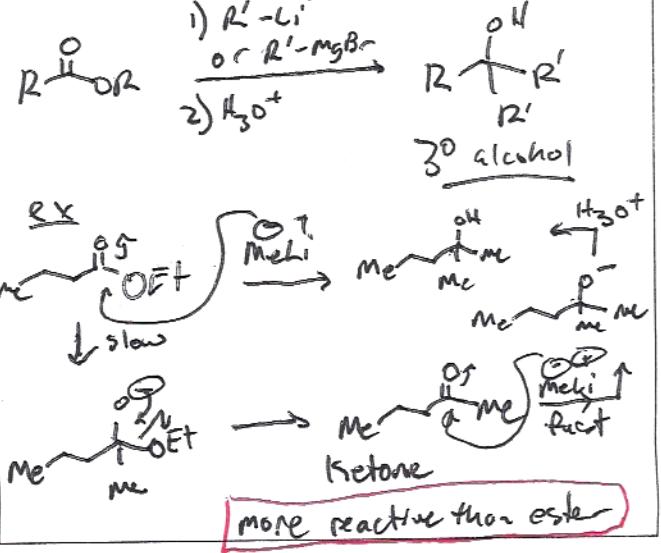 1) R'-Li
or R'-MgBr
2) H3O+
O
R OR
OH
R R'
R'
3° alcohol
ex
O
Me OEt
⊖
MeLi
OH
Me Me
Me
H3O+
O-
Me Me
Me
slow
O⊖
Me OEt
Me
O
Me Me
Ketone
⊖ ⊕
MeLi
fast
more reactive than ester